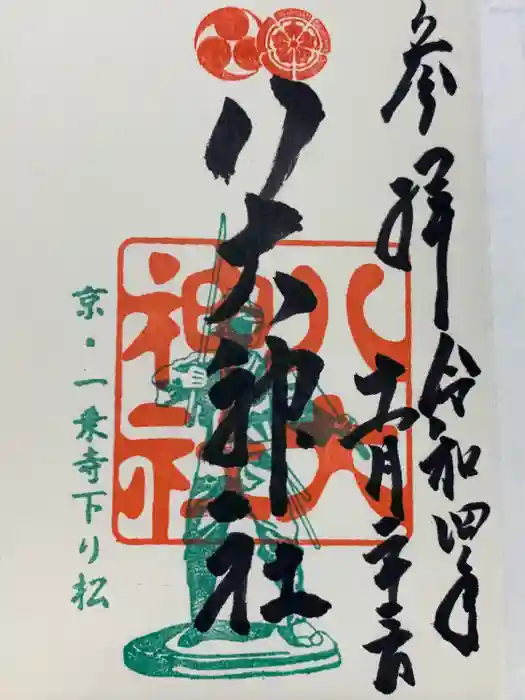 参拝 令和四年
十一月
八大神社
八大
神社
京・一乗寺下り松